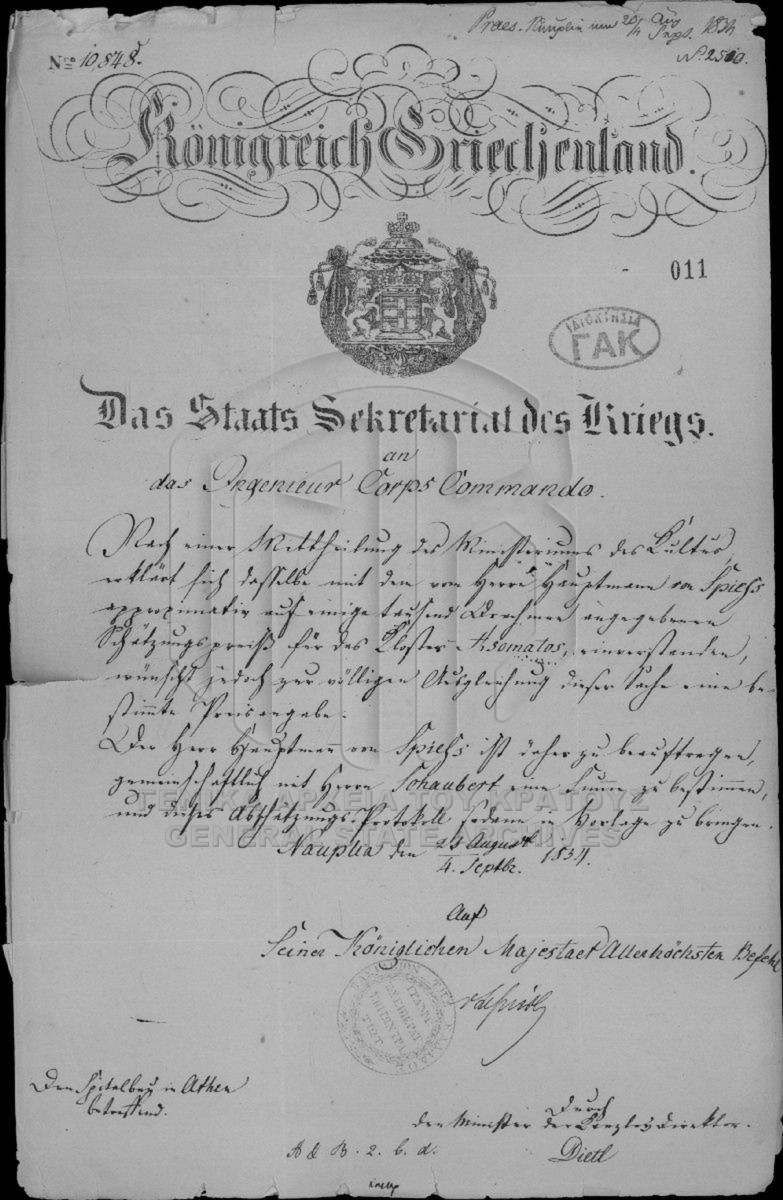 Praes. Nauplia am 26/4 Aug/Sept. 1834
Nro 10,848.
No. 2510.
Königreich Griechenland.
011
ΙΔΙΟΚΤΗΣΙΑ
ΓΑΚ
Das Staats Sekretariat des Kriegs.
an
das Ingenieur Corps Commando.
Nach einer Mittheilung des Ministeriums des Kultus,
erklärt sich dasselbe mit dem vom Herrn Hauptmann von Spieß
approximativ auf einige tausend Drachmen angegebenen
Schätzungspreiß für das Kloster Asomatos, einverstanden,
wünscht jedoch zur völligen Ausgleichung dieser Sache eine be-
stimmte Preisangabe.
Der Herr Hauptmann von Spieß ist daher zu beauftragen,
gemeinschaftlich mit Herrn Schaubert eine Summe zu bestimmen,
und dieses Abschätzungs-Protokoll sodann in Vorlage zu bringen.
ΓΕΝΙΚΑ ΑΡΧΕΙΑ ΤΟΥ ΚΡΑΤΟΥΣ
GENERAL STATE ARCHIVES
Nauplia den 23 August/4. Septbr. 1834.
Auf
Seiner Königlichen Majestaet Allerhöchsten Befehl
Den Spitalbau in Athen
betreffend.
Durch
den Minister der Kanzleydirektor.
Dietl
A d B. 2. b. d.